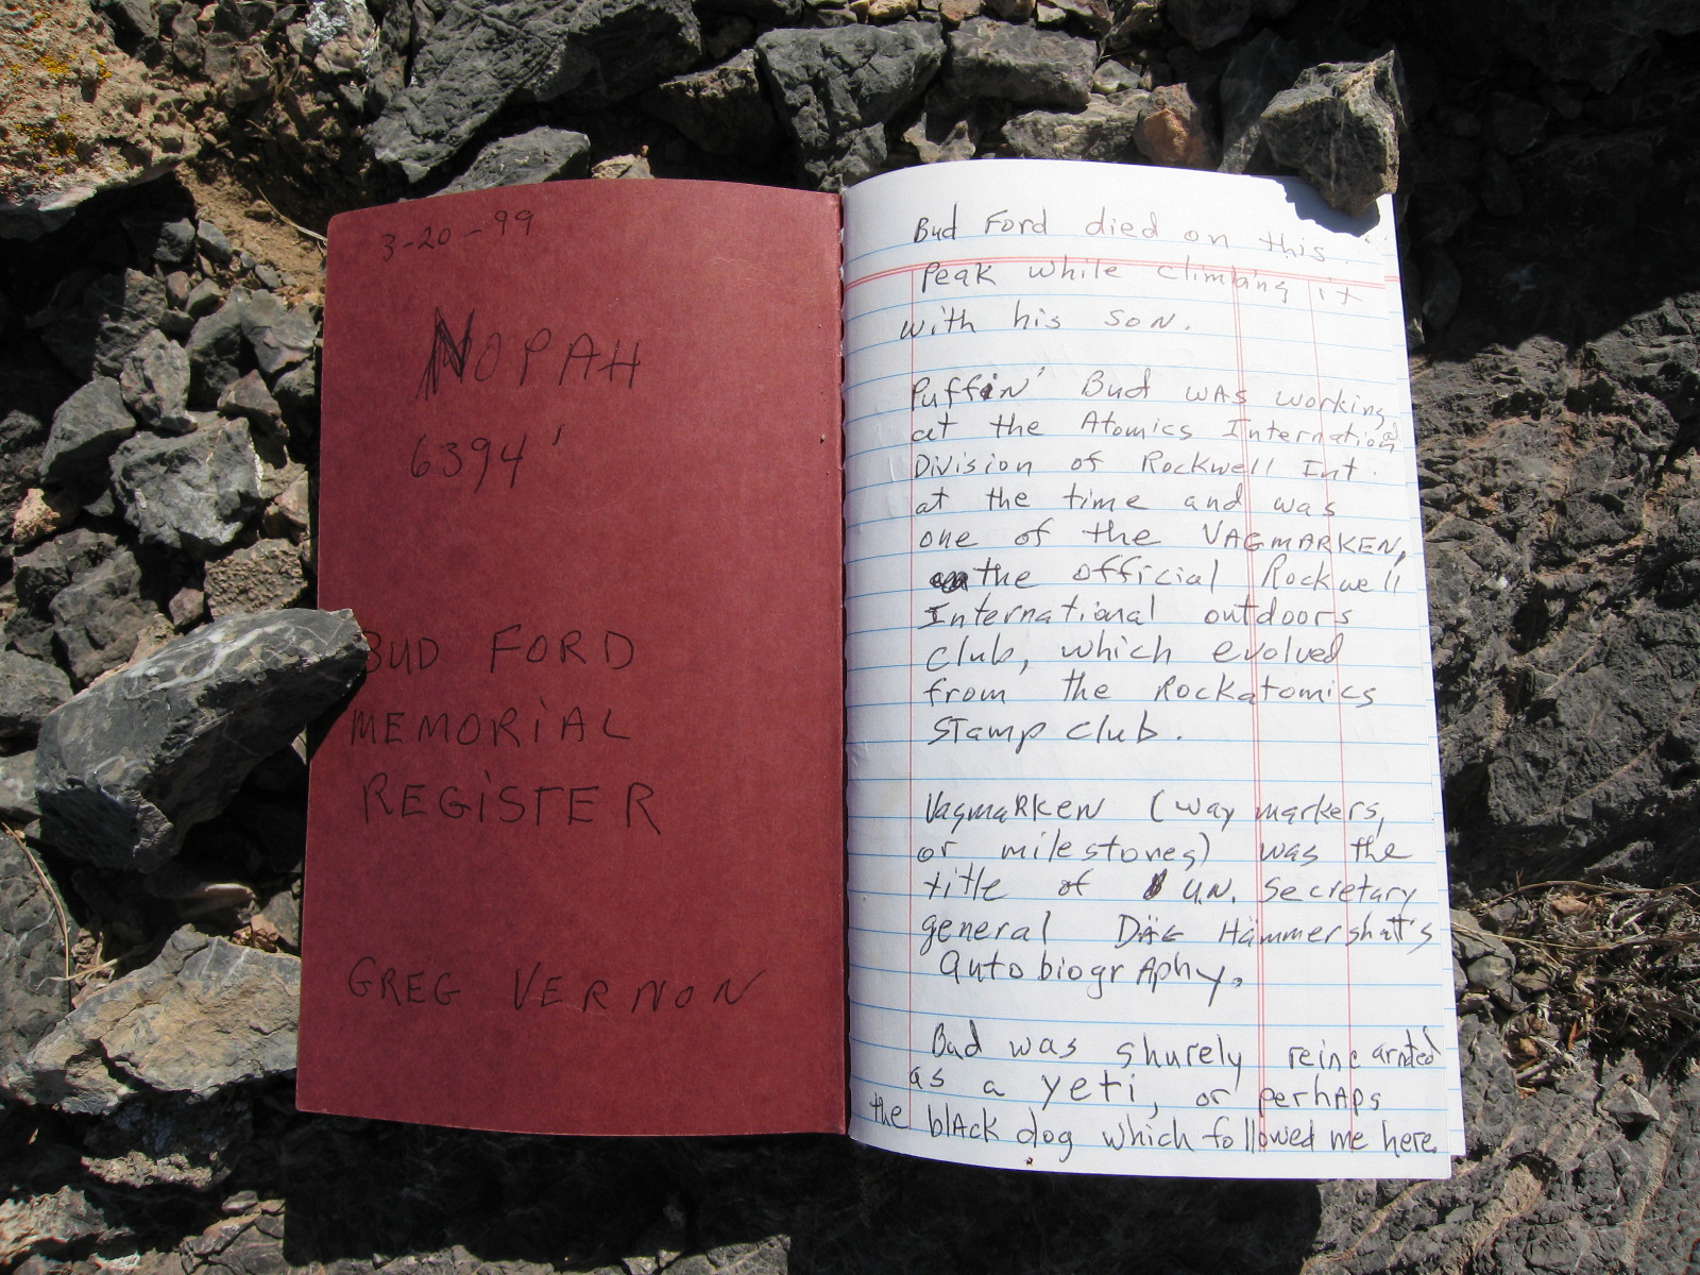 3-20-99
NOPAH
6394'
BUD FORD
MEMORIAL
REGISTER
GREG VERNON
Bud Ford died on this
Peak while climbing it
with his son.
Puffin' Bud was working
at the Atomics International
Division of Rockwell Int.
at the time and was
one of the VAGMARKEN,
the official Rockwell
International outdoors
club, which evolved
from the Rockatomics
Stamp club.
Vagmarken (way markers,
or milestones) was the
title of U.N. Secretary
general DÄG Hämmershatt's
autobiography.
Bud was shurely reincarnted
as a yeti, or perhaps
the black dog which followed me here.